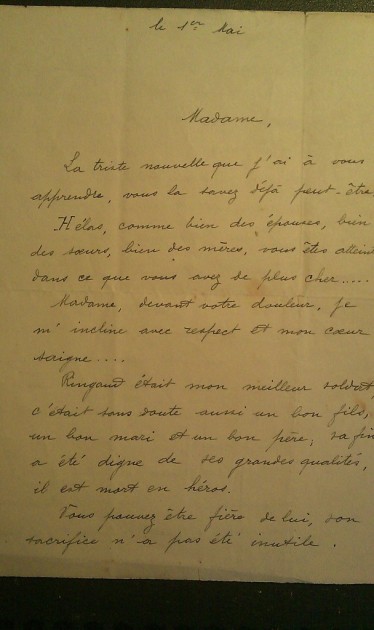 le 1er Mai
Madame,
La triste nouvelle que j'ai à vous
apprendre, vous la savez déjà peut-être
Hélas, comme bien des épouses, bien
des sœurs, bien des mères, vous êtes attein
dans ce que vous avez de plus cher.....
Madame, devant votre douleur, je
m'incline avec respect et mon cœur
saigne....
Ringaud était mon meilleur soldat,
c'était sans doute aussi un bon fils,
un bon mari et un bon père, sa fin
a été digne de ses grandes qualités,
il est mort en héros.
Vous pouvez être fière de lui, son
sacrifice n'a pas été inutile.